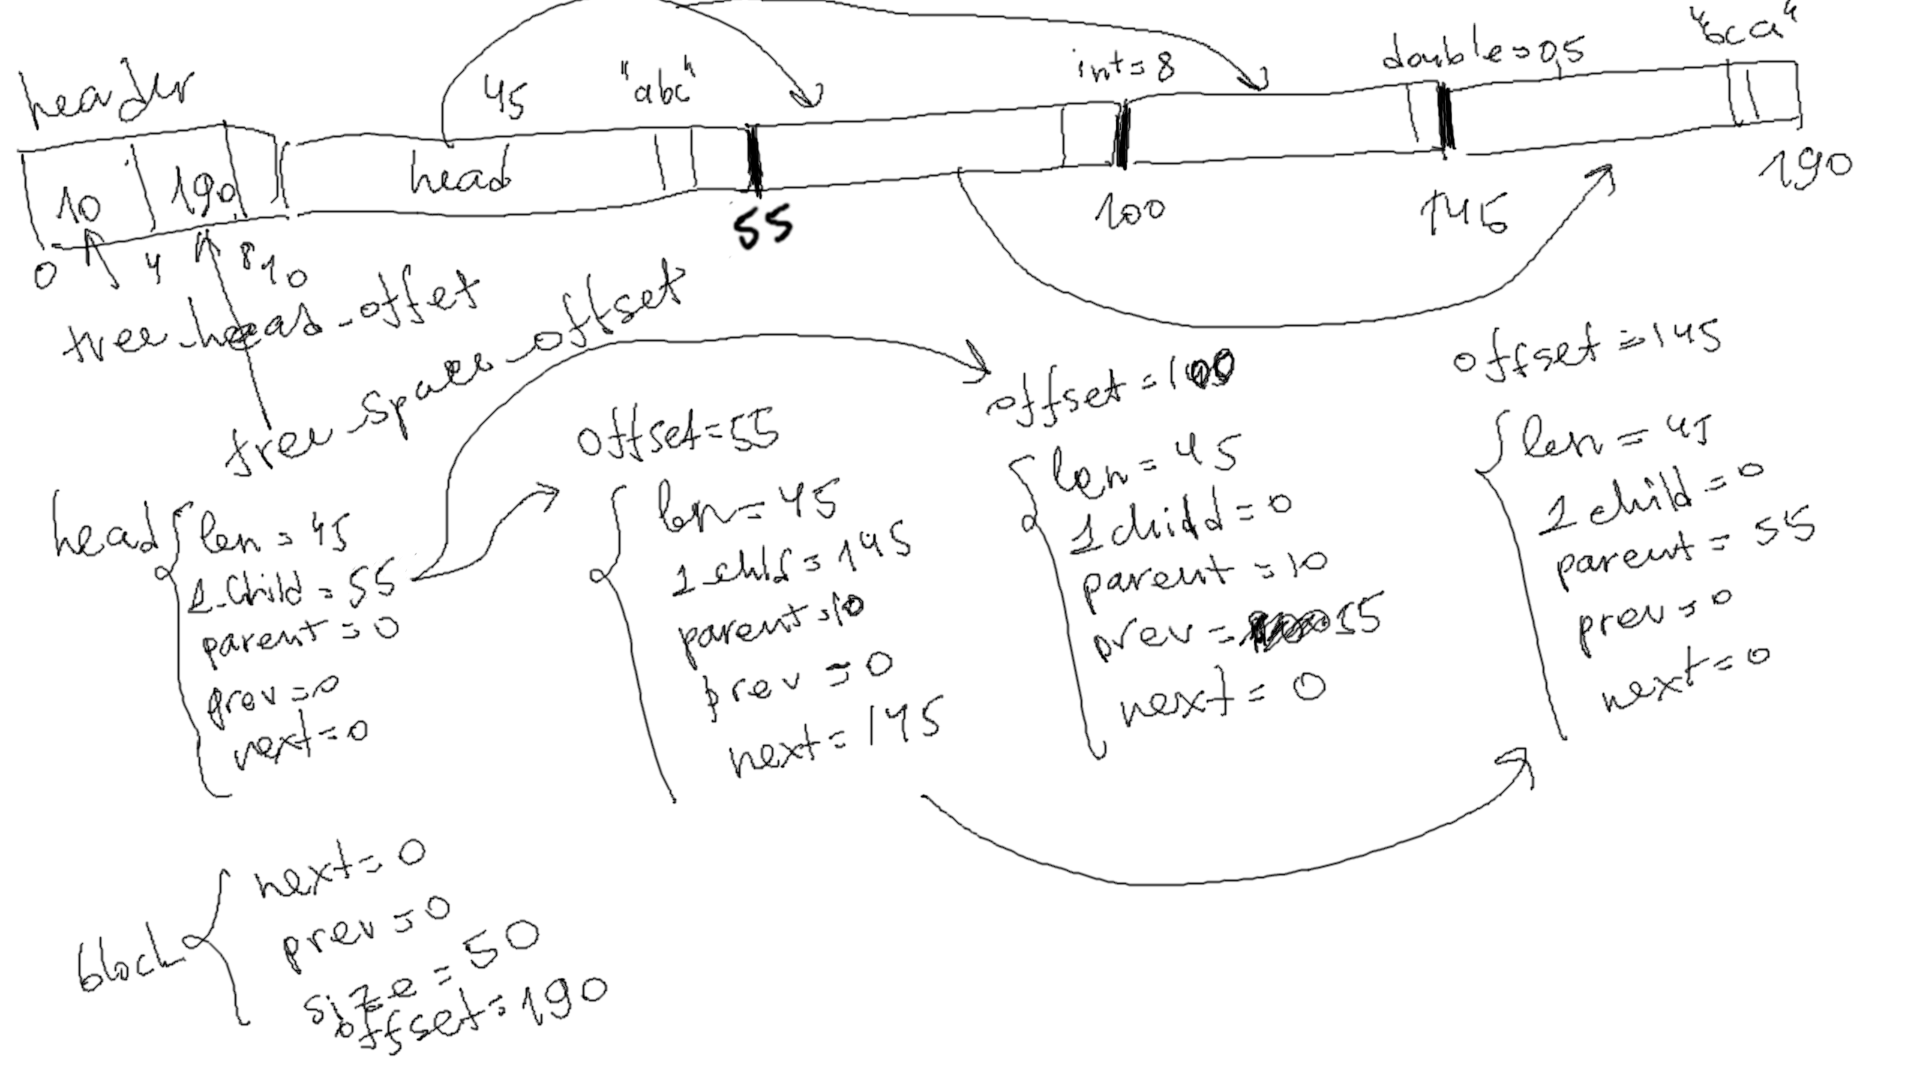 "bca"
double=0,5
int=8
45 "abc"
header
10 190 head
55 100 145 190
0 4 8 10
tree_head_offet
free_space_offset
offset=55
offset=100
offset=145
head
len=45
1_Child=55
parent=0
prev=0
next=0
len=45
1_child=145
parent=10
prev=0
next=145
len=45
1 child=0
parent=10
prev=55
next=0
len=45
1 child=0
parent=55
prev=0
next=0
block
next=0
prev=0
size=50
offset=190